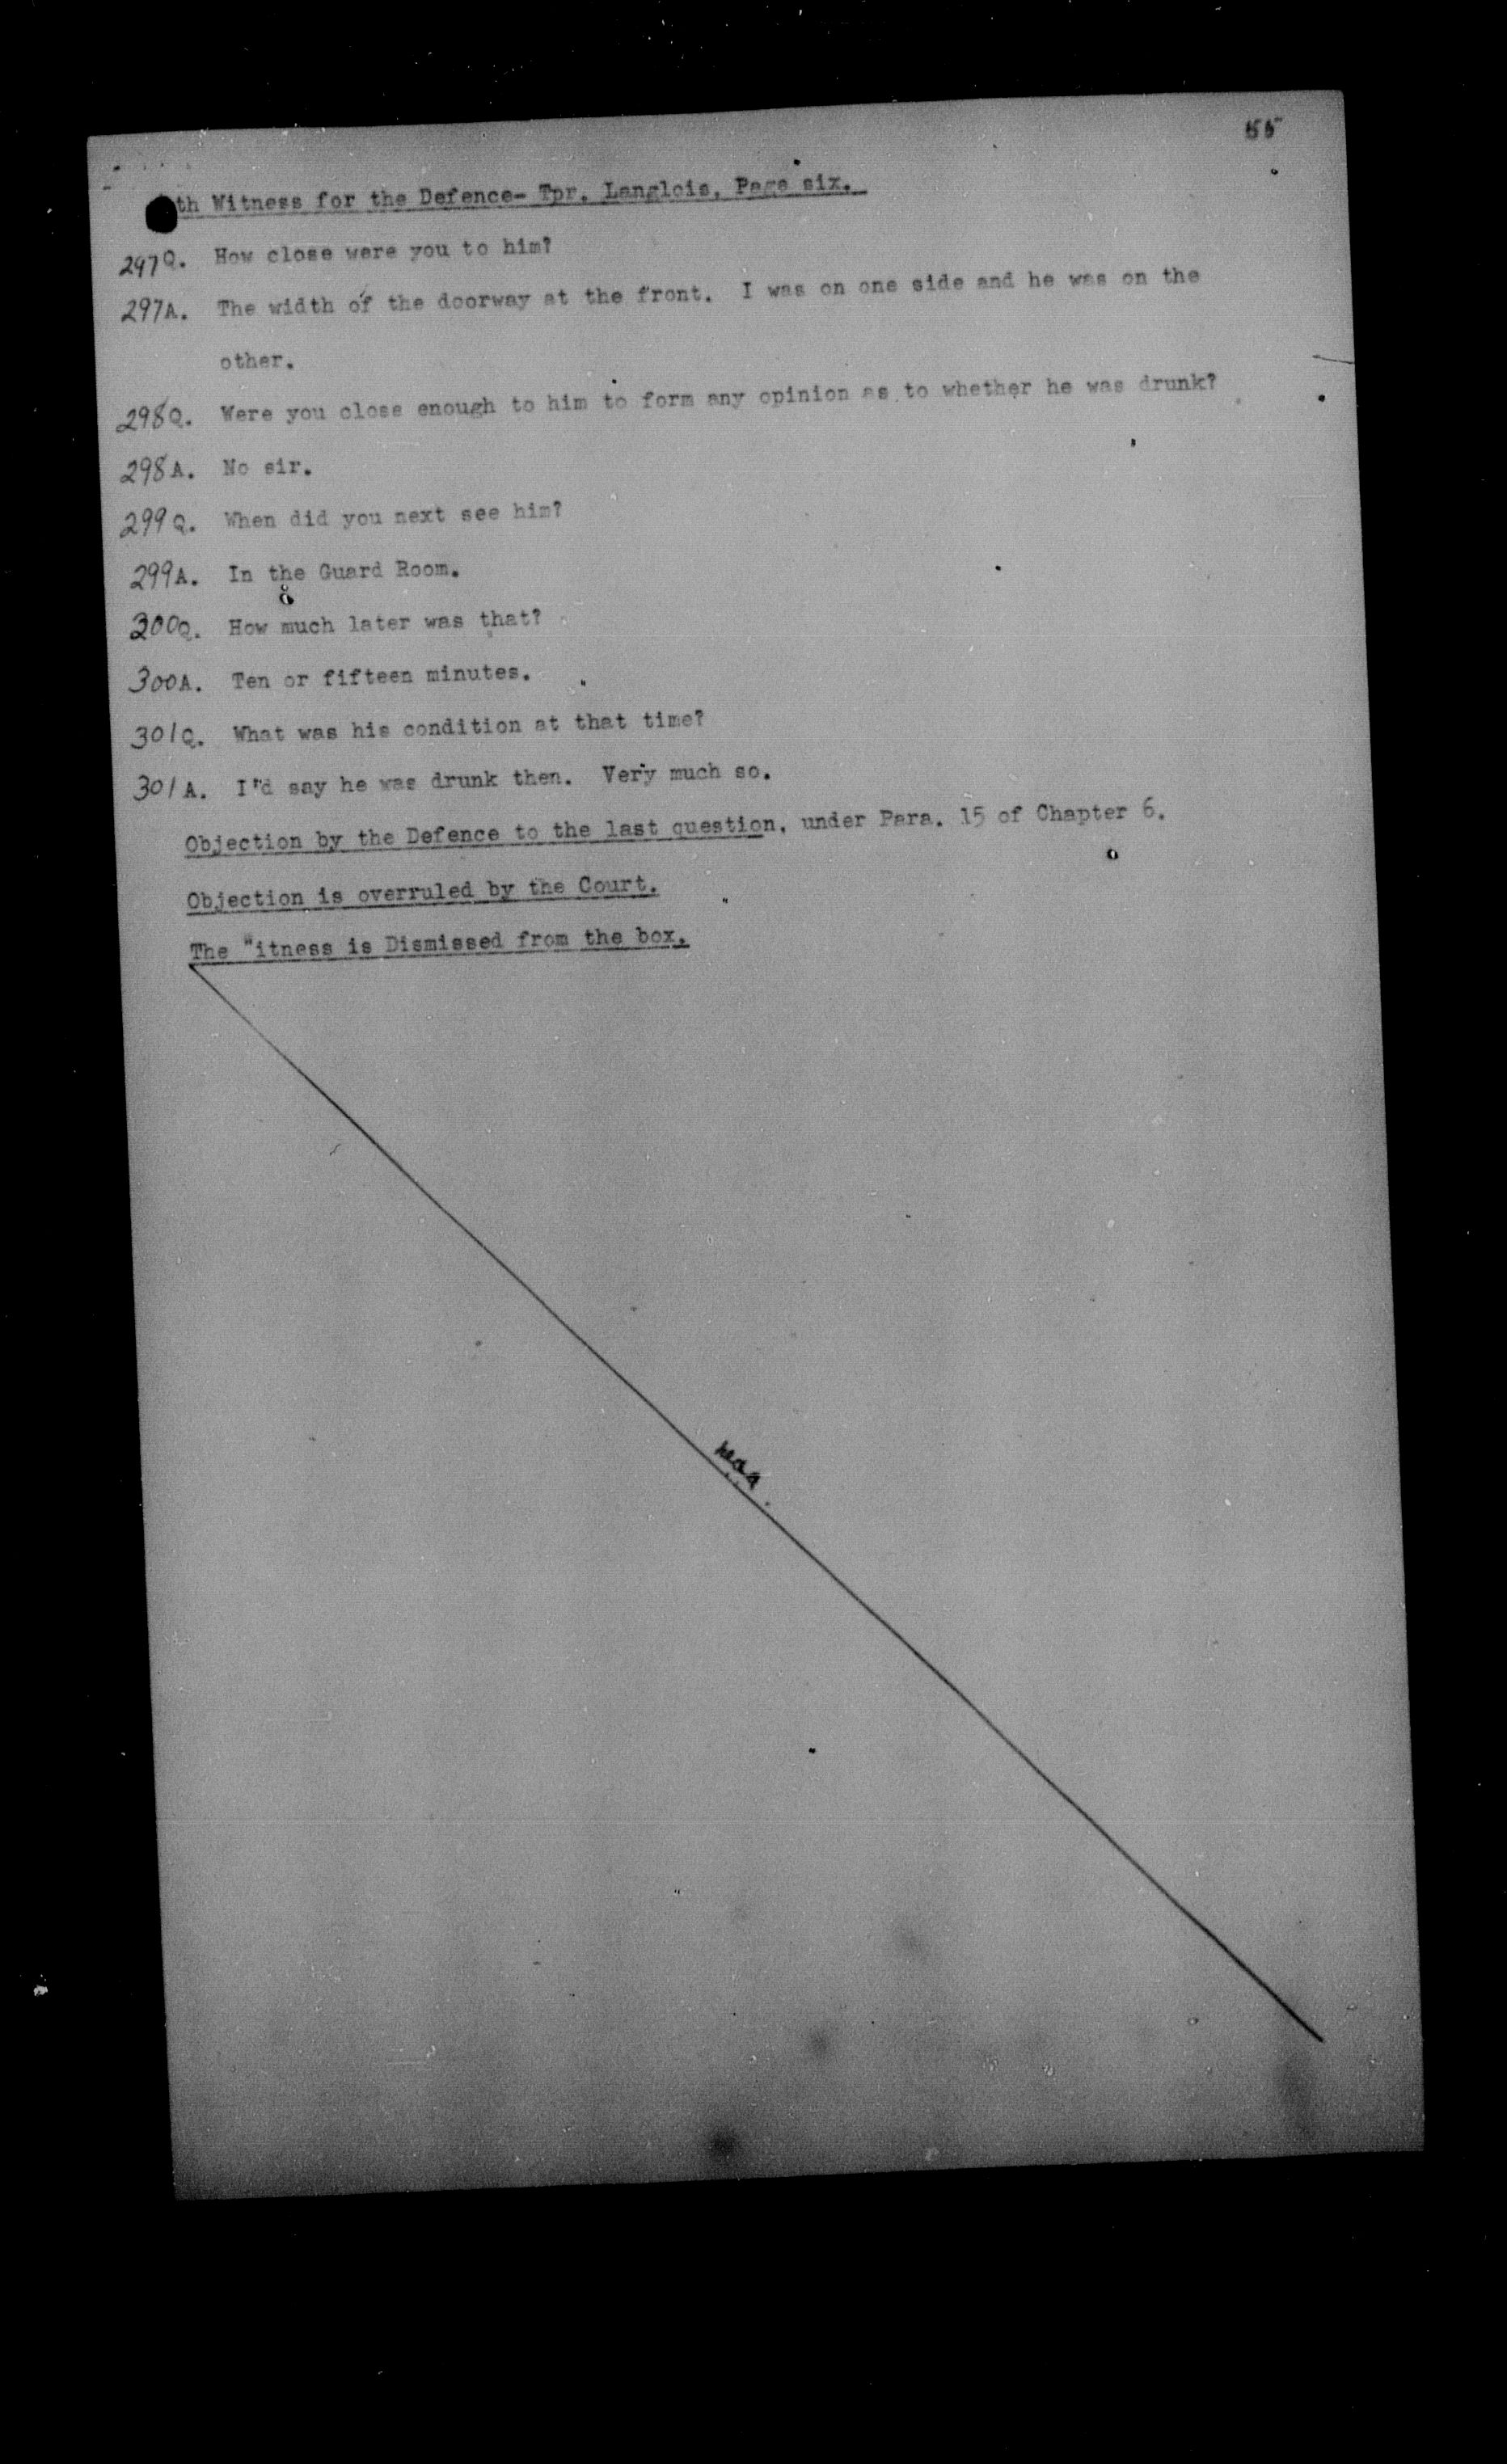 55
th Witness for the Defence- Tpr. Langlois, Page six.
297Q. How close were you to him?
297A. The width of the doorway at the front. I was on one side and he was on the
other.
298Q. Were you close enough to him to form any opinion as to whether he was drunk?
298A. No sir.
299Q. When did you next see him?
299A. In the Guard Room.
300Q. How much later was that?
300A. Ten or fifteen minutes.
301Q. What was his condition at that time?
301A. I'd say he was drunk then. Very much so.
Objection by the Defence to the last question, under Para. 15 of Chapter 6.
Objection is overruled by the Court.
The "itness is Dismissed from the box.